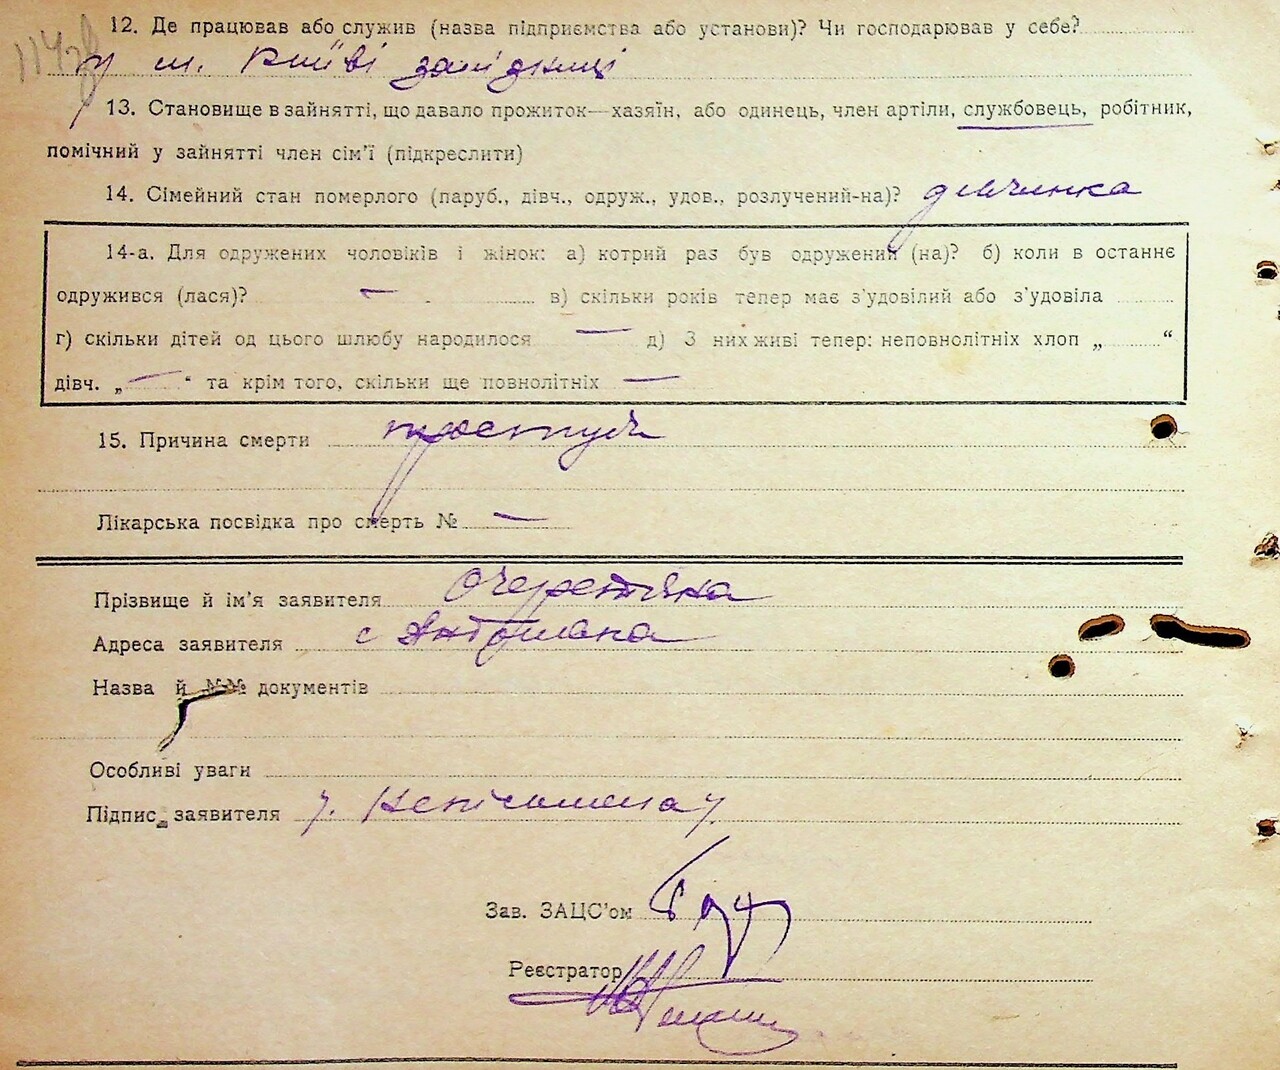 114зв
12. Де працював або служив (назва підприємства або установи)? Чи господарював у себе?
у м. Київі
13. Становище в зайнятті, що давало прожиток—хазяїн, або одинець, член артіли, службовець, робітник,
помічний у зайнятті член сім'ї (підкреслити)
14. Сімейний стан померлого (паруб., дівч., одруж., удов., розлучений-на)? девчинка
14-а. Для одружених чоловіків і жінок: а) котрий раз був одружений (на)? б) коли в останнє
одружився (лася)? — в) скільки років тепер має з'удовілий або з'удовіла
г) скільки дітей од цього шлюбу народилося — д) З них живі тепер: неповнолітніх хлоп „ “
дівч. „ — “ та крім того, скільки ще повнолітніх —
15. Причина смерти простуда
Лікарська посвідка про смерть № —
Прізвище й ім'я заявителя Очеретяна
Адреса заявителя с
Назва й №№ документів
Особливі уваги
Підпис заявителя
Зав. ЗАЦС'ом
Реєстратор